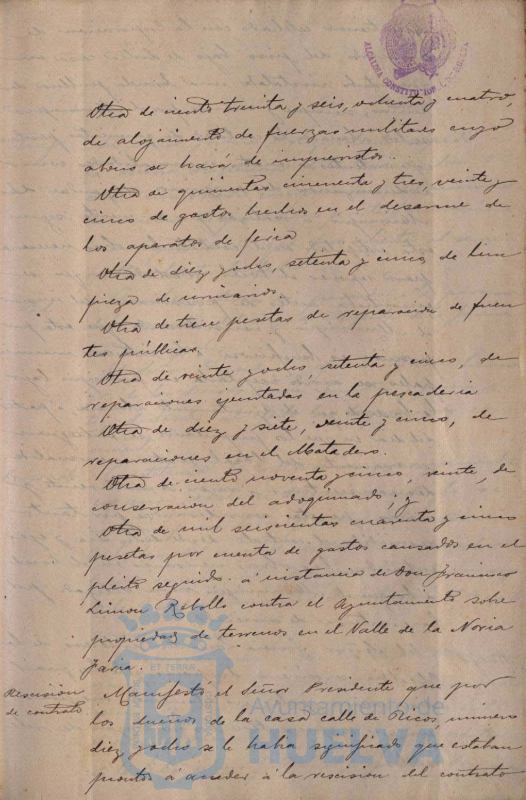 ALCALDIA CONSTITUCIONAL
Otra de ciento treinta y seis, ochenta y cuatro,
de alojamiento de fuerzas militares cuyo
abono se hará de imprevistos.
Otra de quinientas cincuenta y tres, veinte y
cinco de gastos hechos en el desarme de
los aparatos de feria
Otra de diez y ocho, setenta y cinco, de lim
pieza de urinarios.
Otra de trece pesetas de reparacion de fuen
tes públicas.
Otra de veinte y ocho, setenta y cinco, de
reparaciones ejecutadas en la pescaderia
Otra de diez y siete, veinte y cinco, de
reparaciones en el Matadero.
Otra de ciento noventa y cinco, veinte, de
conservacion del adoquinado; y
Otra de mil seiscientas cuarenta y cinco
pesetas por cuenta de gastos causados en el
pleito seguido á instancia de Don Francisco
Limon Rebollo contra el Ayuntamiento sobre
propiedad de terrenos en el Valle de la Noria
Rescision
de contrato
Manifestó el Señor Presidente que por
los dueños de la casa calle de Ricos, número
diez y ocho se le habia significado que estaban
prontos á acceder á la rescision del contrato
ET TERRÆ
Ayuntamiento de
HUELVA